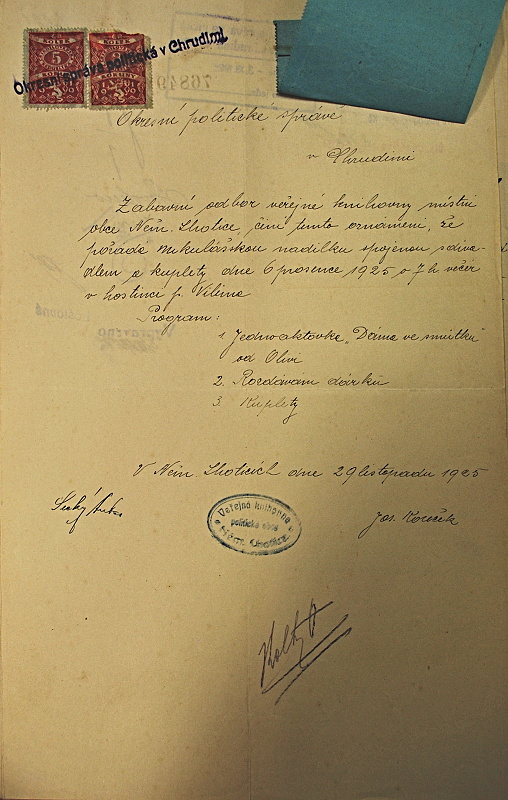 Okresní správa politická v Chrudimi
KOLEK
5
KOLEK
5
76849
Okresní politické správě
v Chrudimi
Zábavní odbor veřejné knihovny místní
obce Něm. Lhotice, činí tímto oznámení, že
pořádá mikulášskou nadílku spojenou s diva-
dlem a kuplety dne 6 prosence 1925 o 7 h večer
v hostinci p. Viléma
Program:
1. Jednoaktovka „Dáma ve smutku"
od Olivi
2. Rozdávám dárků
3. Kuplety
V Něm. Lhoticích dne 29 listopadu 1925
Veřejná knihovna
politické obce
Něm. Lhotice
Jos. Koreček